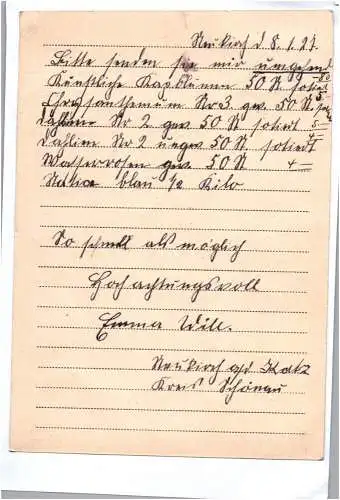 Neukirch d 8.1.27.
Bitte senden sie mir umgehend
Künstliche Kapblumen 50 St sotiert
Chrysanthemum Nr 3 gew. 50 St sot
Dahlien Nr 2 gew 50 St sotiert 5 —
Dahlien Nr 2 ungew 50 St sotiert 4 —
Wasserrosen gew. 50 St 4 —
blau ½ Kilo
So schnell als möglich
Hochachtungsvoll
Emma Will.
Neukirch a/d Katz
Kreis Schönau